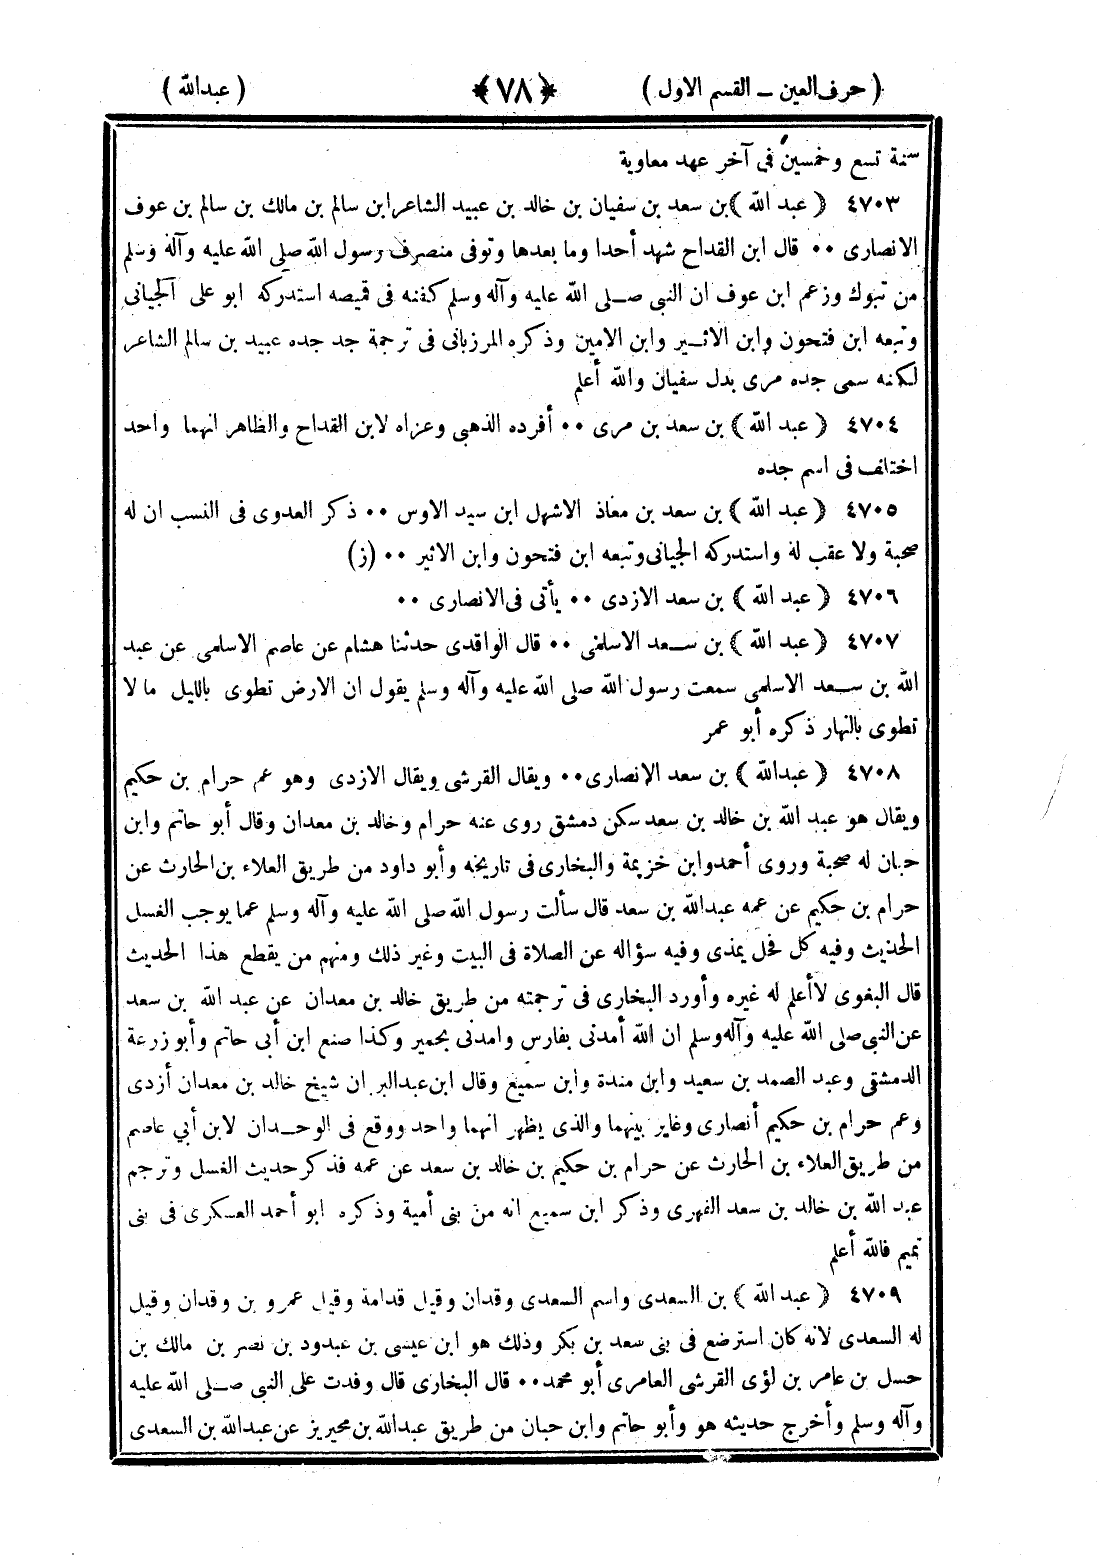 ( حرف العين – القسم الاول ) ﴿ ٧٨ ﴾ ( عبدالله )
سنة تسع وخمسين فى آخر عهد معاوية
٤٧٠٣ ﴿ عبد الله ﴾ بن سعد بن سفيان بن خالد بن عبيد الشاعر ابن سالم بن مالك بن سالم بن عوف
الانصارى ٠٠ قال ابن القداح شهد أحدا وما بعدها وتوفى منصرف رسول الله صلى الله عليه وآله وسلم
من تبوك وزعم ابن عوف ان النبى صلى الله عليه وآله وسلم كفنه فى قميصه استدركه ابو على الجيانى
وتبعه ابن فتحون وابن الاثير وابن الامين وذكره المرزبانى فى ترجمة جد جده عبيد بن سالم الشاعر
لكنه سمى جده مرى بدل سفيان والله أعلم
٤٧٠٤ ﴿ عبد الله ﴾ بن سعد بن مرى ٠٠ أفرده الذهبى وعزاه لابن القداح والظاهر انهما واحد
اختلف فى اسم جده
٤٧٠٥ ﴿ عبد الله ﴾ بن سعد بن معاذ الاشهل ابن سيد الاوس ٠٠ ذكر العدوى فى النسب ان له
صحبة ولا عقب له واستدركه الجيانى وتبعه ابن فتحون وابن الاثير ٠٠ (ز)
٤٧٠٦ ﴿ عبد الله ﴾ بن سعد الازدى ٠٠ يأتى فى الانصارى ٠٠
٤٧٠٧ ﴿ عبد الله ﴾ بن سعد الاسلمى ٠٠ قال الواقدى حدثنا هشام عن عاصم الاسلمى عن عبد
الله بن سعد الاسلمى سمعت رسول الله صلى الله عليه وآله وسلم يقول ان الارض تطوى بالليل ما لا
تطوى بالنهار ذكره أبو عمر
٤٧٠٨ ﴿ عبدالله ﴾ بن سعد الانصارى ٠٠ ويقال القرشى ويقال الازدى وهو عم حرام بن حكيم
ويقال هو عبد الله بن خالد بن سعد سكن دمشق روى عنه حرام وخالد بن معدان وقال أبو حاتم وابن
حبان له صحبة وروى أحمد وابن خزيمة والبخارى فى تاريخه وأبو داود من طريق العلاء بن الحارث عن
حرام بن حكيم عن عمه عبدالله بن سعد قال سألت رسول الله صلى الله عليه وآله وسلم عما يوجب الغسل
الحديث وفيه كل فحل يمذى وفيه سؤاله عن الصلاة فى البيت وغير ذلك ومنهم من يقطع هذا الحديث
قال البغوى لا أعلم له غيره وأورد البخارى فى ترجمته من طريق خالد بن معدان عن عبد الله بن سعد
عن النبى صلى الله عليه وآله وسلم ان الله أمدنى بفارس وامدنى بحمير وكذا صنع ابن أبى حاتم وأبو زرعة
الدمشقى وعبد الصمد بن سعيد وابن مندة وابن سميع وقال ابن عبدالبر ان شيخ خالد بن معدان أزدى
وعم حرام بن حكيم أنصارى وغاير بينهما والذى يظهر انهما واحد ووقع فى الوحدان لابن أبي عاصم
من طريق العلاء بن الحارث عن حرام بن حكيم بن خالد بن سعد عن عمه فذكر حديث الغسل وترجم
عبد الله بن خالد بن سعد الفهرى وذكر ابن سميع انه من بنى أمية وذكره ابو أحمد العسكرى فى بنى
تميم فالله أعلم
٤٧٠٩ ﴿ عبد الله ﴾ بن السعدى واسم السعدى وقدان وقيل قدامة وقيل عمرو بن وقدان وقيل
له السعدى لانه كان استرضع فى بنى سعد بن بكر وذلك هو ابن عيسى بن عبدود بن نصر بن مالك بن
حسل بن عامر بن لؤى القرشى العامرى أبو محمد ٠٠ قال البخارى قال وفدت على النبى صلى الله عليه
وآله وسلم وأخرج حديثه هو وأبو حاتم وابن حبان من طريق عبدالله بن محيريز عن عبدالله بن السعدى